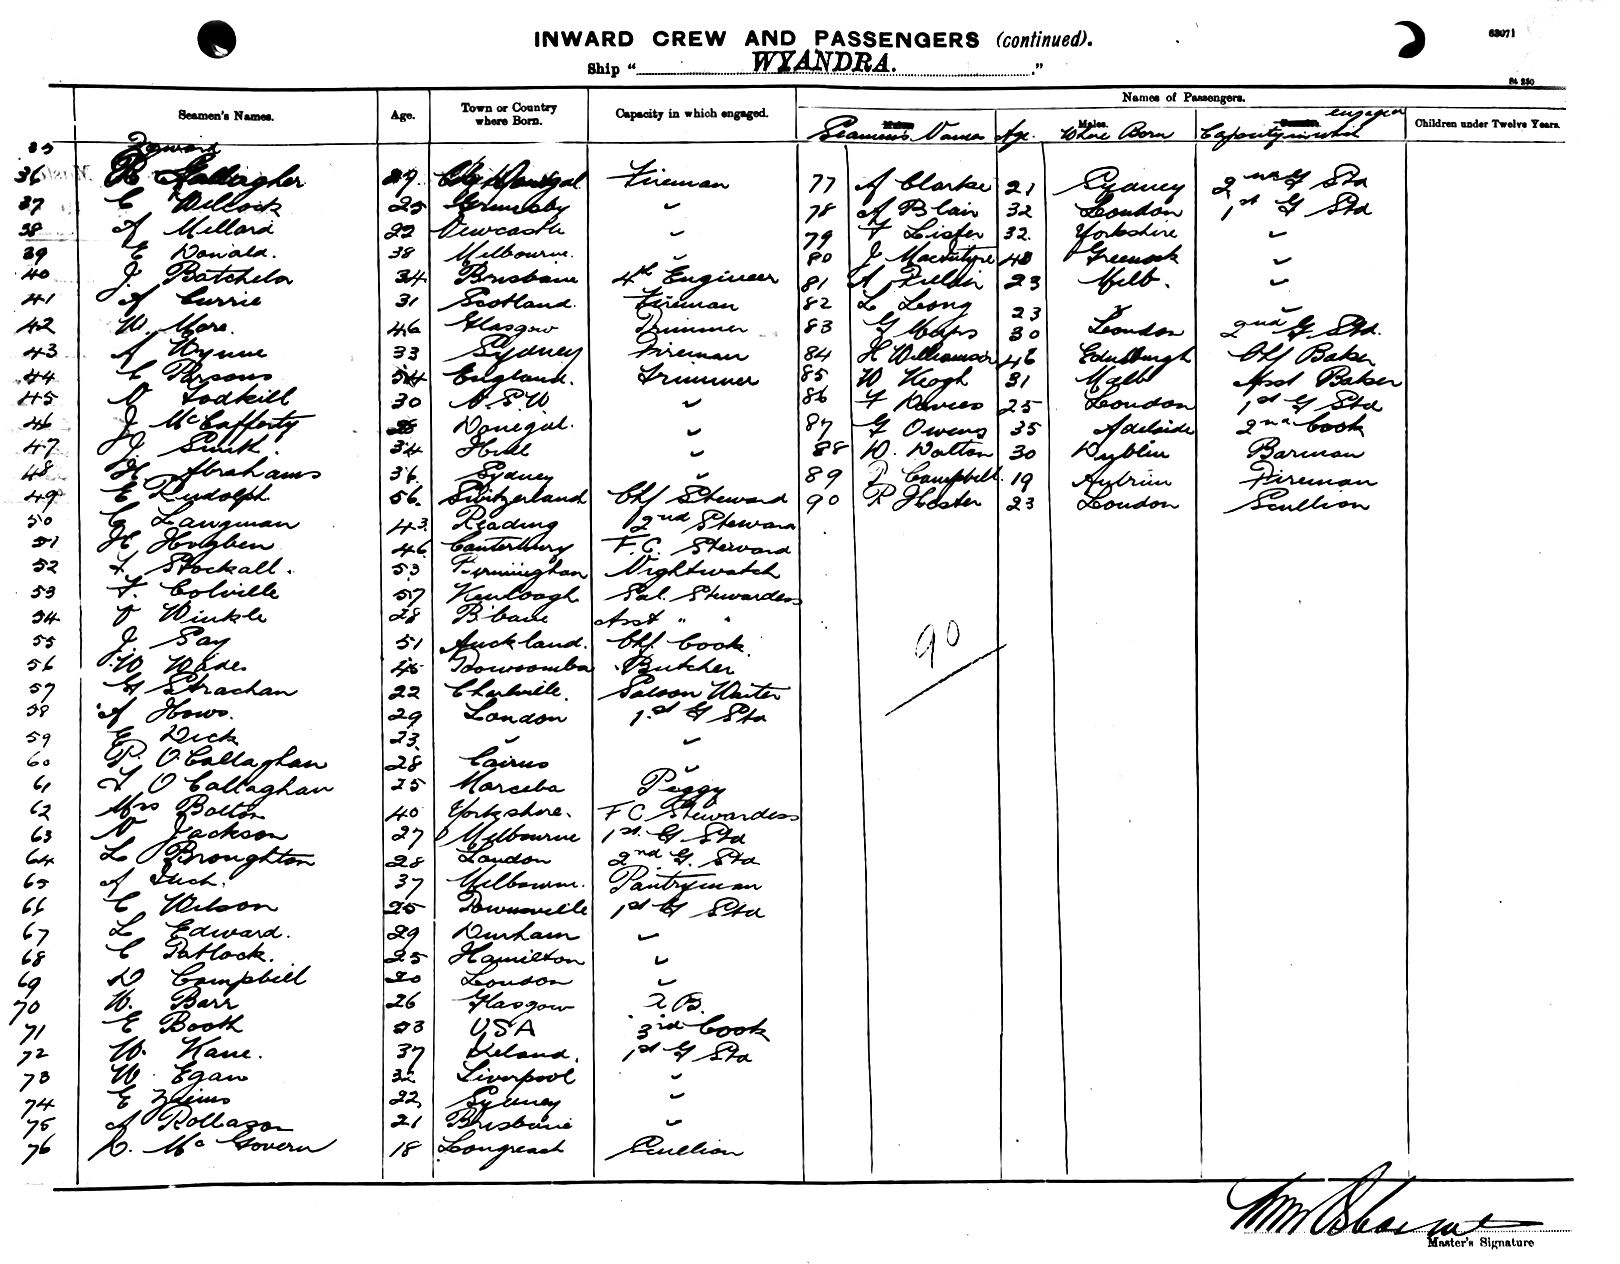 INWARD CREW AND PASSENGERS (continued).
63071
Ship " WYANDRA. "
Seamen's Names. Age. Town or Country where Born. Capacity in which engaged. Names of Passengers.
Seamen's Names Age. Males. Where Born Capacity in which engaged Children under Twelve Years.
35 Forward
36 Gallagher 29 Donegal Fireman
37 C Willock 25 Grimsby "
38 A Millard 22 Newcastle "
39 E Donald. 38 Melbourne. "
40 J. Batchelor 34 Brisbane 4th Engineer
41 A Currie 31 Scotland. Fireman
42 W. More. 46 Glasgow Trimmer
43 A Wynne 33 Sydney Fireman
44 C Parsons 54 England. Trimmer
45 N Todkill 30 N.S.W. "
46 J McCafferty 28 Donegal. "
47 J. Smith. 34 Hull "
48 H Abrahams 36 Sydney "
49 E Rudolph 56 Switzerland Chf Steward
50 C Langman 43 Reading 2nd Steward
51 H. Hogben 46 Canterbury F.C. Steward
52 F Stockall. 53 Birmingham Nightwatch
53 F. Colville 57 Sal. Stewardess
54 V Winkle 28 B'bane Asst " "
55 J. Say 51 Auckland. Chf Cook
56 W Wades 45 Toowoomba Butcher
57 G Strachan 22 Charleville. Saloon Waiter
58 A Hows. 29 London 1st G Std
59 E Dick 23 " "
60 P. O'Callaghan 28 Cairns "
61 F O Callaghan 25 Mareeba Peggy
62 Mrs Bolton 40 Yorkshire. F C Stewardess
63 N Jackson 27 Melbourne 1st. G Std
64 L Broughton 28 London 2nd G. Std
65 A 37 Melbourne. Pantryman
66 C Wilson 25 Townsville 1st G Std
67 L Edward. 29 Durham "
68 C Patlock. 25 Hamilton "
69 D Campbell 20 London "
70 W. Barr 26 Glasgow A.B.
71 E Booth 23 USA 3rd Cook
72 W. Kane. 37 Ireland. 1st G Std
73 W. Egan 32 Liverpool "
74 E 22 Sydney "
75 A Rollason 21 Brisbane "
76 D. McGovern 18 Longreach Scullion
77 A Clarke 21 Sydney 2nd G Std
78 A Blair 32 London 1st G Std
79 F Lister 32. Yorkshire "
80 J MacIntyre 48 Greenock "
81 A 23 Melb. "
82 L Leong 23 " "
83 G 30 London 2nd G Std.
84 H Williamson 46 Edinburgh Chf Baker
85 W Keogh 31 Melb Asst Baker
86 F Davies 25 London 1st G Std
87 G Owens 35 Adelaide 2nd Cook
88 W. Dalton 30 Dublin Barman
89 Campbell. 19 Antrim Fireman
90 R Hester 23 London Scullion
90
Master's Signature